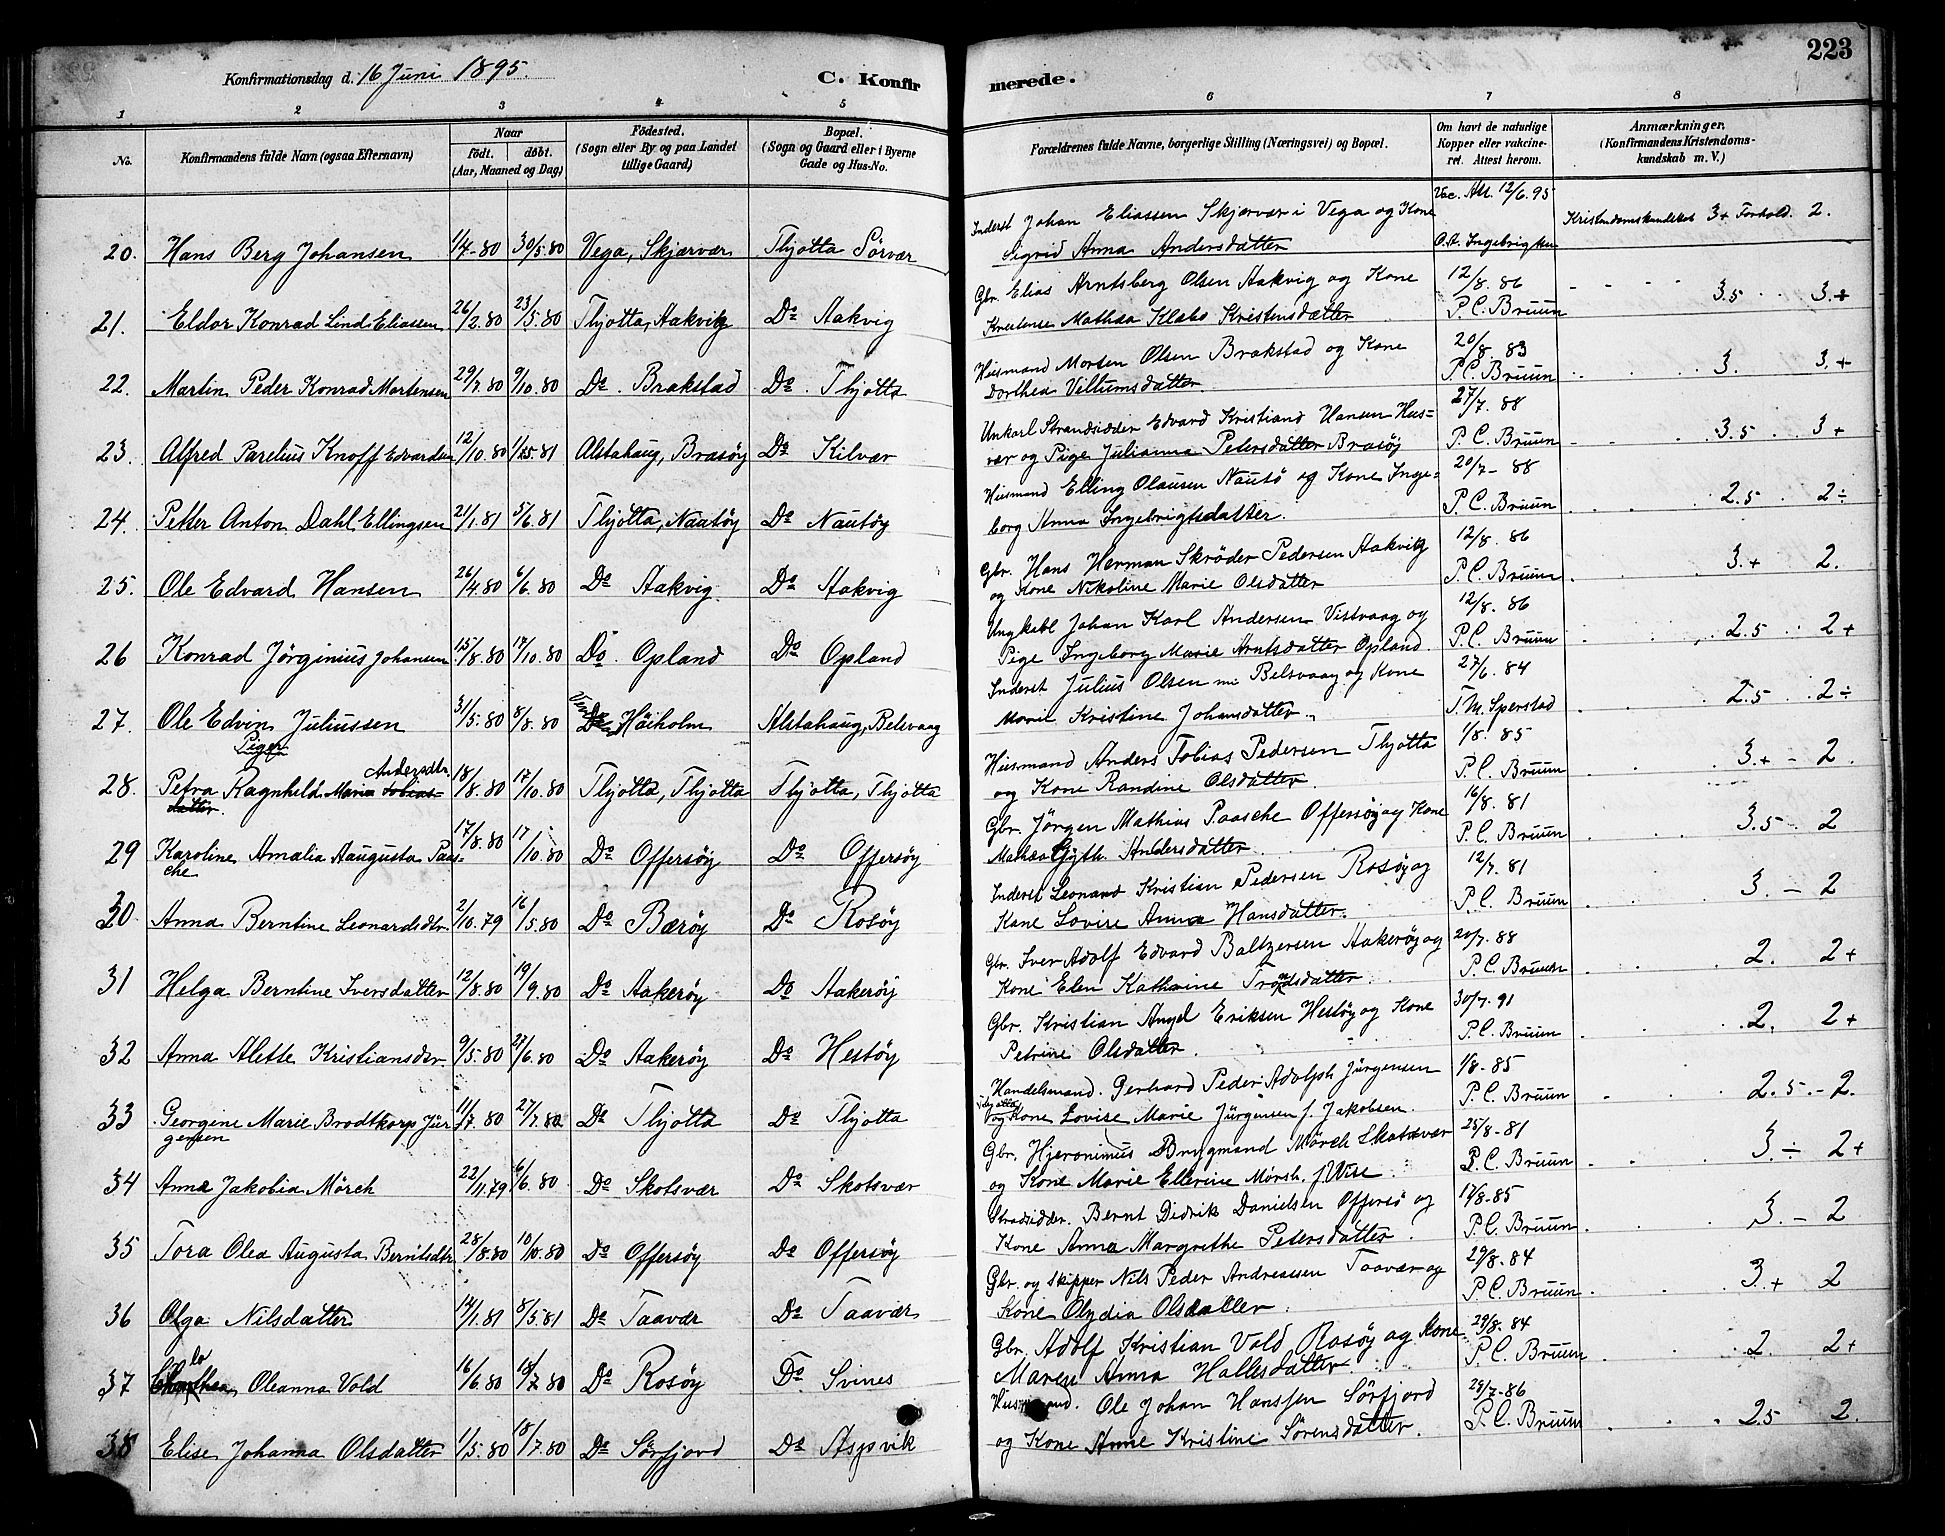 223
Konfirmationsdag d. 16 Juni 1895.
C. Konfirmerede.
1 2 3 4 5 6 7 8
No. Konfirmandens fulde Navn (ogsaa Efternavn) Naar født. døbt. (Aar, Maaned og Dag) Fødested. (Sogn eller By og paa Landet tillige Gaard) Bopæl. (Sogn og Gaard eller i Byerne Gade og Hus-No. Forældrenes fulde Navne, borgerlige Stilling (Næringsvei) og Bopæl. Om havt de naturlige Kopper eller vakcineret. Attest herom. Anmærkninger. (Konfirmandens Kristendomskundskab m. V.)
20. Hans Berg Johansen 1/4-80 30/5.80 Vega, Skjærvær Thjotta Sörvær Inderst Johan Eliassen Skjærvær i Vega og Kone Sigrid Anna Andersdatter Vac. Att. 12/6.95 O.A. Ingebrigtsen Kristendomskundskab 3+ Forhold. 2.
21. Eldor Konrad Lind Eliassen 26/2.80 23/5.80 Thjotta, Aakvig Do Aakvig Gbr. Elias Arntsberg Olsen Aakvig og Kone Mathea Klabo Kristensdatter 12/8.86 P.C. Bruun 3.5 3.+
22. Martin Peder Konrad Mortensen 29/7.80 9/10.80 Do. Brakstad Do. Thjotta Husmand Morten Olsen Brakstad og Kone Dorthea Villumsdatter 20/8.83 P.C. Bruun 3. 3.+
23. Alfred Parelius Knoff Edvardsen 12/10.80 Alstahaug, Brasöy Do Kilvær Unkarl Strandsidder Edvard Kristiand Hansen Husvær og Pige Julianna Petersdatter Brasöy 27/7.88 P.C. Bruun 3.5 3+
24. Petter Anton Dahl Ellingsen 21/1.81 5/6.81 Thjotta, Nautöy Do Nautöy Husmand Elling Olausen Nautö og Kone Ingeborg Anna Ingebrigtsdatter. 20/7-88 P.C. Bruun 2.5 2÷
25. Ole Edvard Hansen 26/4.80 6/6.80 Do Aakvig Do Aakvig Gbr. Hans Herman Skröder Pedersen Aakvig og Kone Nikoline Marie Olsdatter 12/8.86 P.C. Bruun 3.+ 2.
26 Konrad Jörginius Johansen 15/8.80 17/10.80 Do. Opland Do Opland Ungkarl Johan Karl Andersen Vistvaag og Pige Ingeborg Marie Arntsdatter Opland. 12/8.86 P.C. Bruun 2.5 2+
27. Ole Edvin Juliussen 31/5.80 8/8.80 Höiholm Alstahaug, Belsvaag Inderst Julius Olsen Belsvaag og Kone Marie Kristine Johansdatter. 27/6.84 T.M. Sperstad 2.5 2÷
Piger
28. Petra Ragnhild Maria Tobiasdatter. Andersdtr. 18/8.80 17/10.80 Thjotta, Thjotta Thjotta, Thjotta Husmand Anders Tobias Pedersen Thjotta og Kone Randine Olsdatter. 1/8.85 P.C. Bruun 3.+ - 2.
29 Karoline Amalia Augusta Paasche 17/8.80 17/10.80 Do Offersöy Do Offersöy Gbr. Jörgen Mathias Paasche Offersöy og Kone Mathea Gjyth Andersdatter. 16/8.81 P.C. Bruun 3.5- 2
30. Anna Berntine Leonardsdtr. 2/10.79 16/5.80 Do Bæröy Do Rosöy Inderst Leonard Kristian Pedersen Rosöy og Kone Lovise Anna Hansdatter. 12/7.81 P.C. Bruun 3. - 2
31 Helga Berntine Iversdatter 12/8.80 19/9.80 Do Aakeröy Do Aakeröy Gbr. Iver Adolf Edvard Baltzersen Aakeröy og Kone Elen Kathrine Trondsdatter. 20/7.88 P.C. Bruun 2. 2+
32 Anna Alette Kristiansdtr. 9/5.80 27/6.80 Do Aakeröy Do Hestöy Gbr. Kristian Angel Eriksen Hestöy og Kone Petrine Olsdatter. 30/7.91 P.C. Bruun 2. 2+
33 Georgine Marie Brodtkorp Jürgensen 11/7.80 27/7.80 Do Thjotta Do Thjotta Handelsmand. Gerhard Peder Adolph Jürgensen Thjotta og Kone Lovise Marie Jürgensen f. Jakobsen. 1/8-85 P.C. Bruun 2.5.- 2.
34 Anna Jakobia Mörch 22/1.79 6/6.80 Do Skotsvær Do Skotsvær Gbr. Hjeronimus Brygmand Mörch Skotsvær og Kone Marie Ellerine Mörch. f. Wise. 25/8-81 P.C. Bruun 3.÷ 2+
35 Tora Olea Augusta Berntsdtr. 28/8.80 10/10.80 Do Offersöy Do Offersöy Strandsidder. Bernt Didrik Danielsen Offersö og Kone Anna Margrethe Petersdatter. 17/8-85 P.C. Bruun 3. - 2
36 Olga Nilsdatter 14/1.81 8/5.81 Do Taavær Do Taavær Gbr. og Skipper Nils Peder Andreassen Taavær og Kone Olydia Olsdatter. 29/8.84 P.C. Bruun 3.+ 2
37 Oleanna Vold 16/6.80 18/7.80 Do Rosöy Do. Svines Gbr. Adolf Kristian Vold Rosöy og Kone Maren Anna Hallesdatter. 29/8.84 P.C. Bruun 2. 2+
38 Elise Johanna Olsdatter 1/5.80 18/7.80 Do Sörfjord Do Aspvik Husmand. Ole Johan Hanssen Sörfjord og Kone Anne Kristine Sörensdatter. 28/7-86 P.C. Bruun 2.5 2.